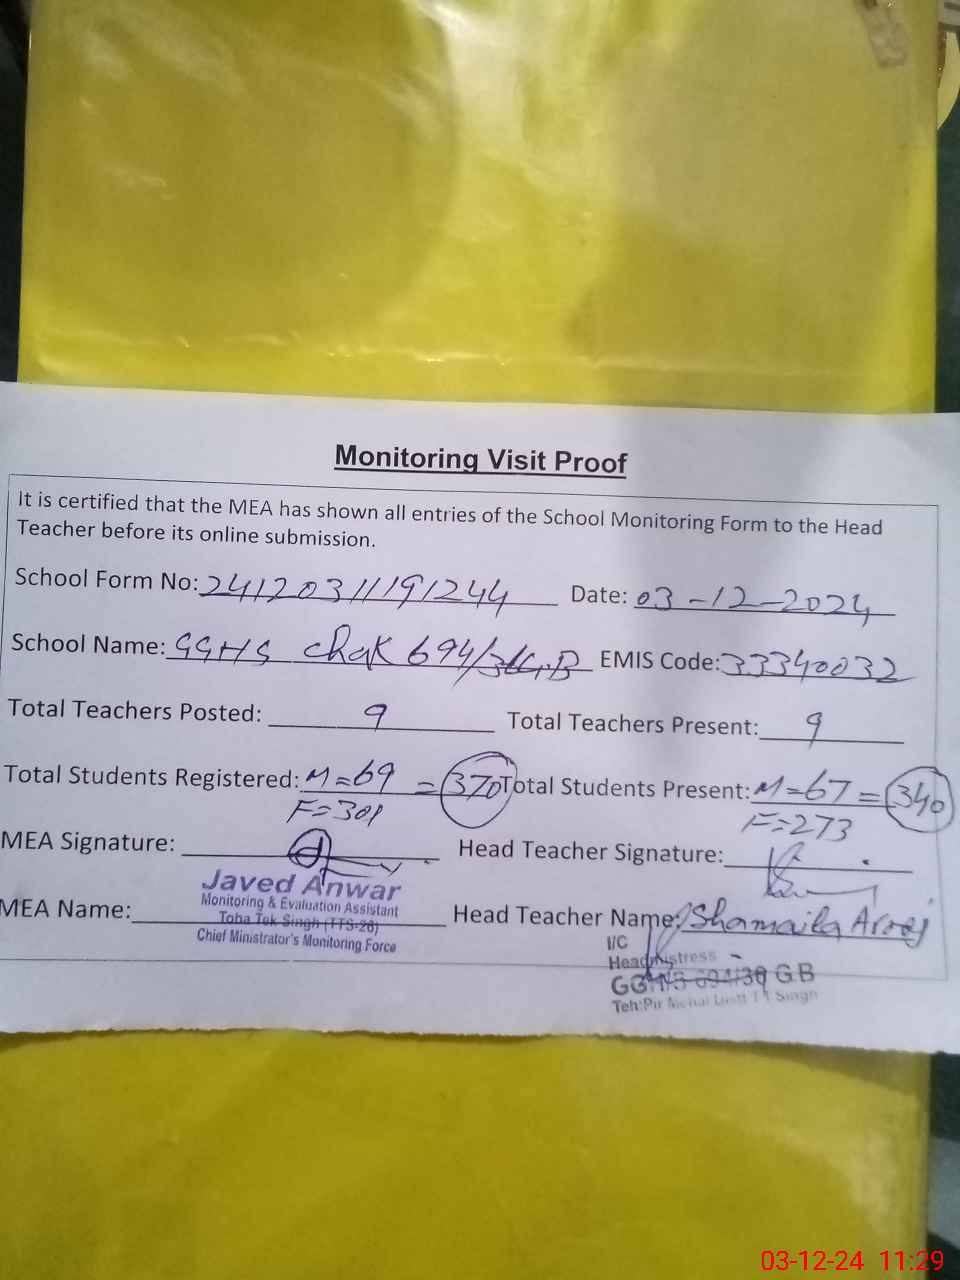 Monitoring Visit Proof
It is certified that the MEA has shown all entries of the School Monitoring Form to the Head
Teacher before its online submission.
School Form No: 24120311191244 Date: 03-12-2024
School Name: GGHS Chak 694/36G.B EMIS Code: 33340032
Total Teachers Posted: 9 Total Teachers Present: 9
Total Students Registered: M=69 = 370 Total Students Present: M=67 = 340
F=301 F=273
MEA Signature: Head Teacher Signature:
Javed Anwar
Monitoring & Evaluation Assistant
MEA Name: Toba Tek Singh (TTS-26) Head Teacher Name: Shamaila Arooj
Chief Ministrator's Monitoring Force
I/C
Headmistress
GGHS 694/36 GB
Teh: Pir Mehal Distt T T Singh
03-12-24 11:29